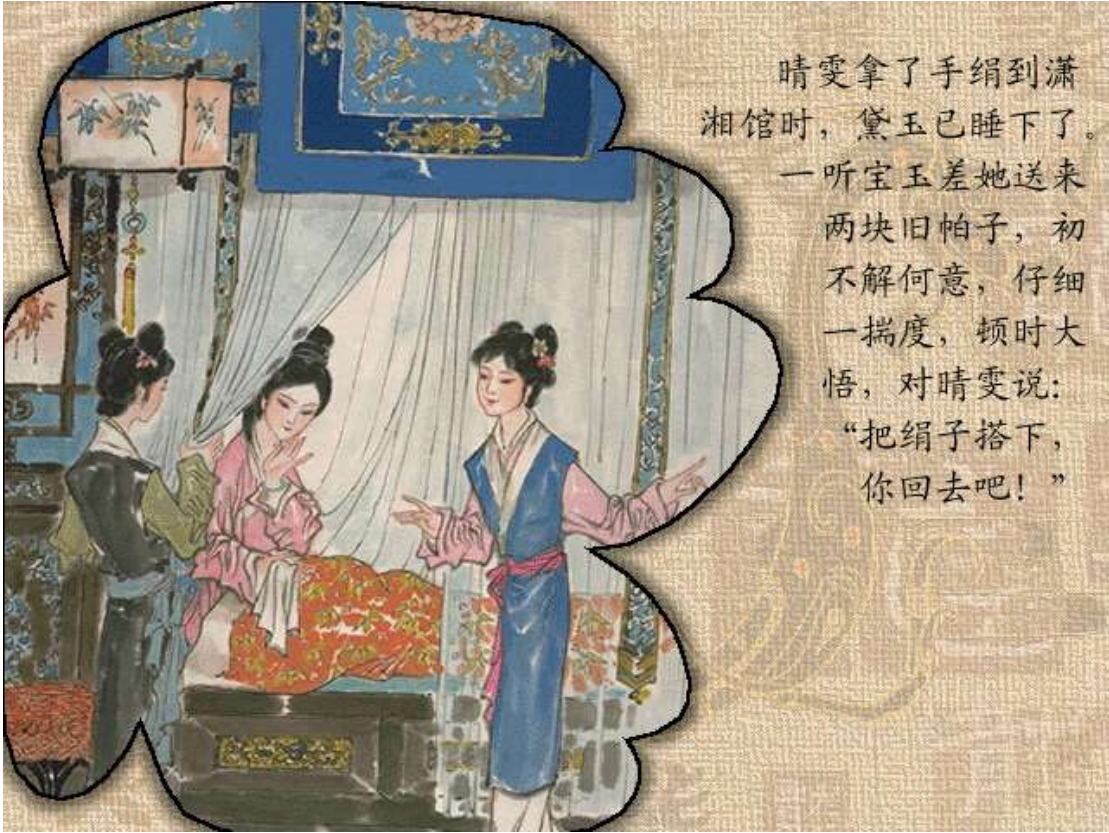 晴雯拿了手绢到潇
湘馆时，黛玉已睡下了。
一听宝玉差她送来
两块旧帕子，初
不解何意，仔细
一揣度，顿时大
悟，对晴雯说：
“把绢子搭下，
你回去吧！”